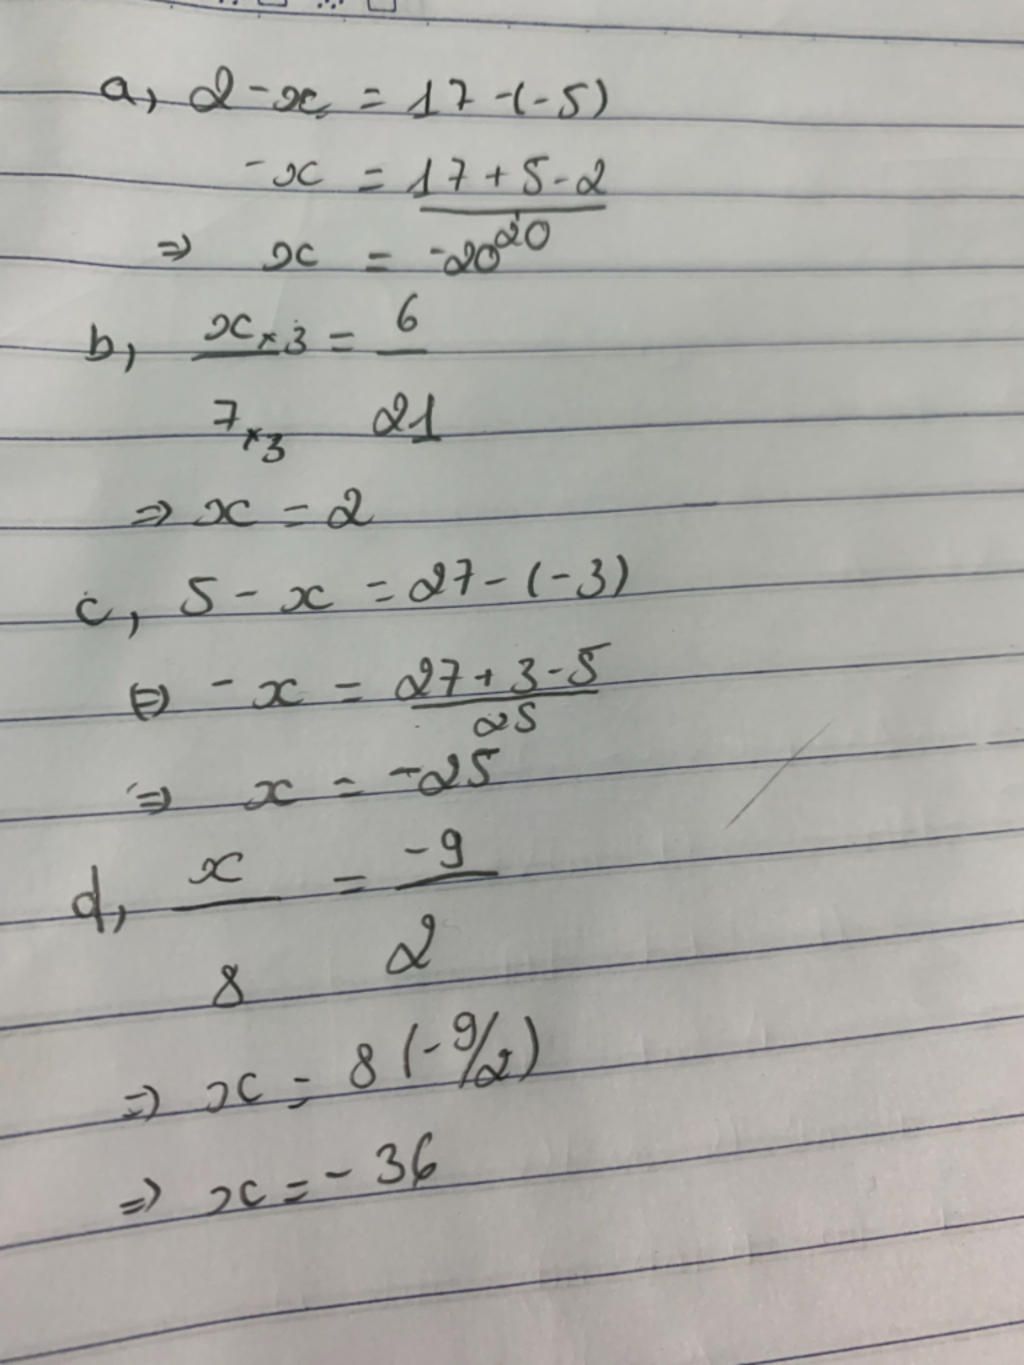 a, 2 - x = 17 - (-5)
- x = 17 + 5 - 2
20
⇒ x = -20
b, x × 3 / 7 × 3 = 6 / 21
⇒ x = 2
c, 5 - x = 27 - (-3)
⇔ - x = 27 + 3 - 5
25
⇒ x = -25
d, x / 8 = -9 / 2
⇒ x = 8 (-9/2)
⇒ x = - 36